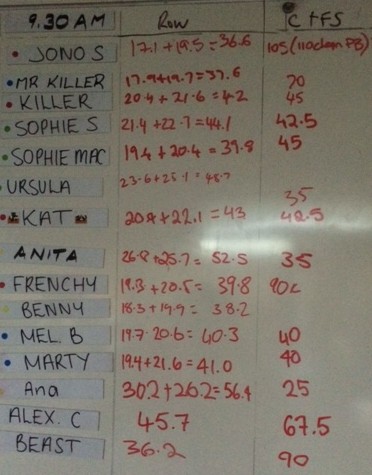 9.30 AM Row C+FS
JONO S 17.1+19.5=36.6 105(110clean PB)
MR KILLER 17.9+19.7=37.6 70
KILLER 20.4+21.6=42 45
SOPHIE S 21.4+22.7=44.1 42.5
SOPHIE MAC 19.4+20.4=39.8 45
URSULA 23.6+25.1=48.7 35
KAT 20.9+22.1=43 42.5
ANITA 26.8+25.7=52.5 35
FRENCHY 19.3+20.5=39.8 80c
BENNY 18.3+19.9=38.2
MEL. B 19.7 20.6=40.3 40
MARTY 19.4+21.6=41.0 40
Ana 30.2+26.2=56.4 25
ALEX. C 45.7 67.5
BEAST 36.2 90